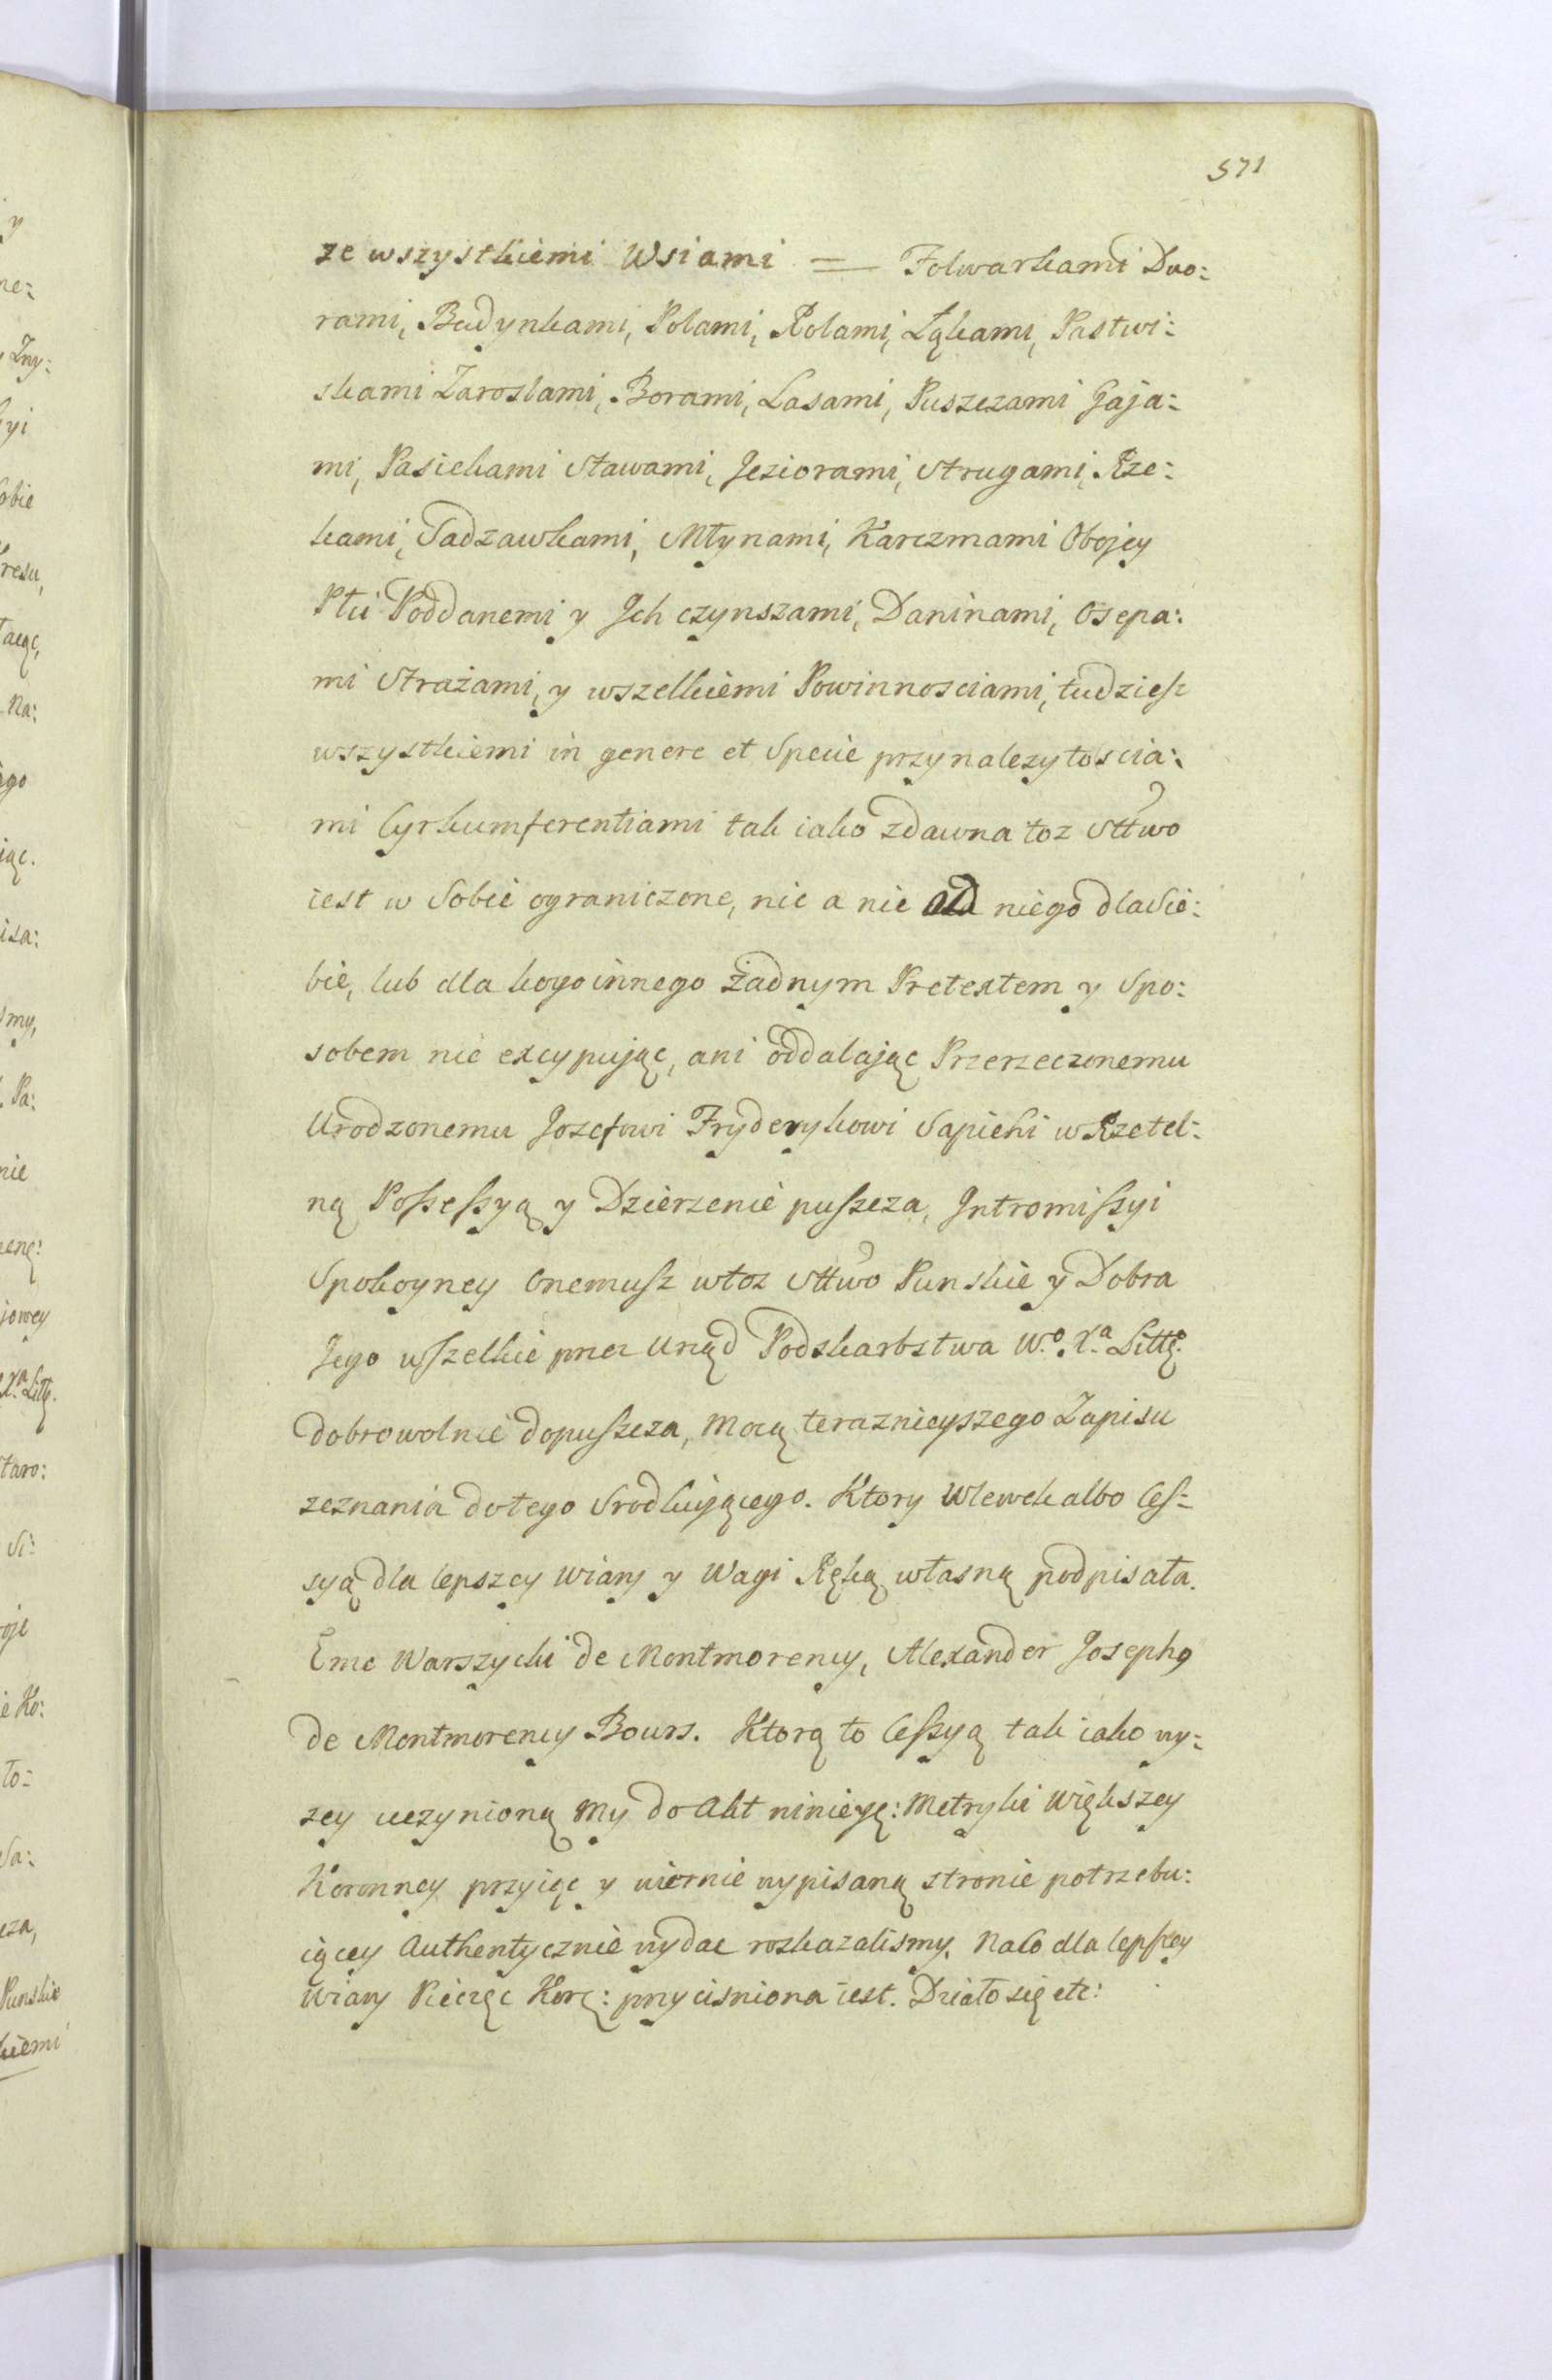 571
ze wszystkiemi Wsiami = Folwarkami Dwo:
rami, Budynkami, Polami, Rolami, Łąkami, Pastwi:
skami Zaroslami, Borami, Lasami, Puszczami Gaja:
mi, Pasiekami Stawami, Jeziorami, Strugami, Rze:
kami, Sadzawkami, Młynami, Karczmami Obojey
Płci Poddanemi y Jch czynszami, Daninami, Osepa:
mi Strażami, y wszelkiemi Powinnosciami, tudziesz
wszystkiemi in genere et Specie przynalezytoscia:
mi Cyrkumferentiami tak iako zdawna toz Sttwo
iest w Sobie ograniczone, nic a nic od niego dla Sie:
bie, lub dla kogo innego żadnym Pretextem y Spo:
sobem nie excypując, ani oddalając Przerzeczonemu
Urodzonemu Jozefowi Fryderykowi Sapiehi w Rzetel:
ną Possessyą y Dzierzenie puszcza, Intromissyi
Spokoyney Onemusz wtoz Sttwo Punskie y Dobra
Jego wszelkie przez Urząd Podskarbstwa W.o X.a Littę.
dobrowolnie dopuszcza, Mocą teraznieyszego Zapisu
zeznania do tego Srodkującego. Ktory Wlewek albo Ces:
syą dla lepszey Wiary y Wagi Ręką własną podpisała.
Eme Warszycki de Montmorency, Alexander Josephq
de Montmorency Bours. Ktorą to Cessyą tak iako wy:
zey uczynioną My do Akt ninieyę: Metryki Większey
Koronney przyiąc y wiernie wypisaną stronie potrzebu:
iącey Authentycznie wydac rozkazalismy. Na Co dla lepszey
Wiary Pieczęc Korę: przycisniona iest. Działo się etc: